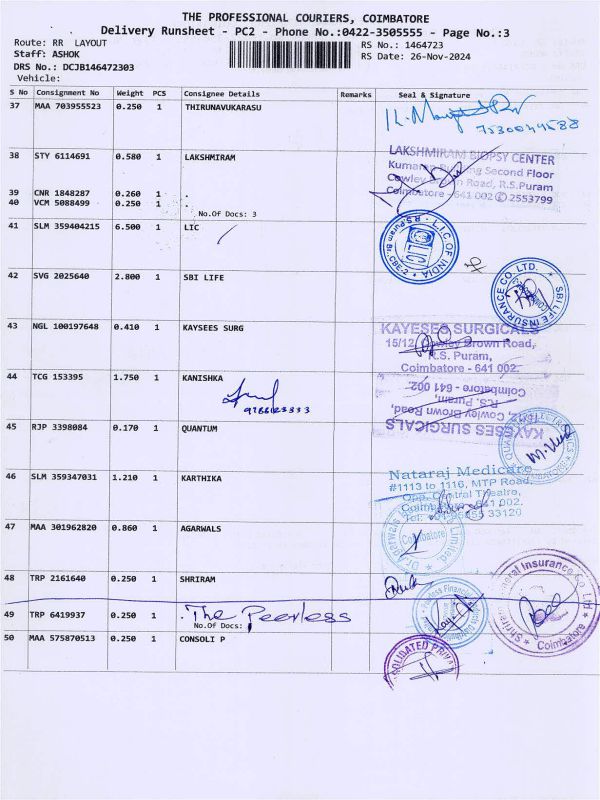 THE PROFESSIONAL COURIERS, COIMBATORE
Delivery Runsheet - PC2 - Phone No.:0422-3505555 - Page No.:3
Route: RR LAYOUT
RS No.: 1464723
Staff: ASHOK
RS Date: 26-Nov-2024
DRS No.: DCJB146472303
Vehicle:
S No Consignment No Weight PCS Consignee Details Remarks Seal & Signature
37 MAA 703955523 0.250 1 THIRUNAVUKARASU
38 STY 6114691 0.580 1 LAKSHMIRAM
LAKSHMIRAM BIOPSY CENTER
Second Floor
Road, R.S.Puram
Coimbatore - 641 002 ✆ 2553799
39 CNR 1848287 0.260 1 .
40 VCM 5088499 0.250 1 .
No.Of Docs: 3
41 SLM 359404215 6.500 1 LIC
L.I.C OF INDIA
R.S.Puram Br. CBE-2
42 SVG 2025640 2.800 1 SBI LIFE
SBI LIFE INSURANCE CO. LTD.
43 NGL 100197648 0.410 1 KAYSEES SURG
KAYESES SURGICALS
15/12, Cowley Brown Road,
R.S. Puram,
Coimbatore - 641 002.
44 TCG 153395 1.750 1 KANISHKA
Coimbatore - 641 002.
R.S. Puram,
Cowley Brown Road,
KAYESES SURGICALS
45 RJP 3398084 0.170 1 QUANTUM
46 SLM 359347031 1.210 1 KARTHIKA
Nataraj Medicare
#1113 to 1116, MTP Road,
Opp. Central Theatre,
Coimbatore - 641 002.
47 MAA 301962820 0.860 1 AGARWALS
Coimbatore
48 TRP 2161640 0.250 1 SHRIRAM
Shriram General Insurance Co. Ltd.
Coimbatore
49 TRP 6419937 0.250 1 . The Peerless
No.Of Docs:
50 MAA 575870513 0.250 1 CONSOLI P